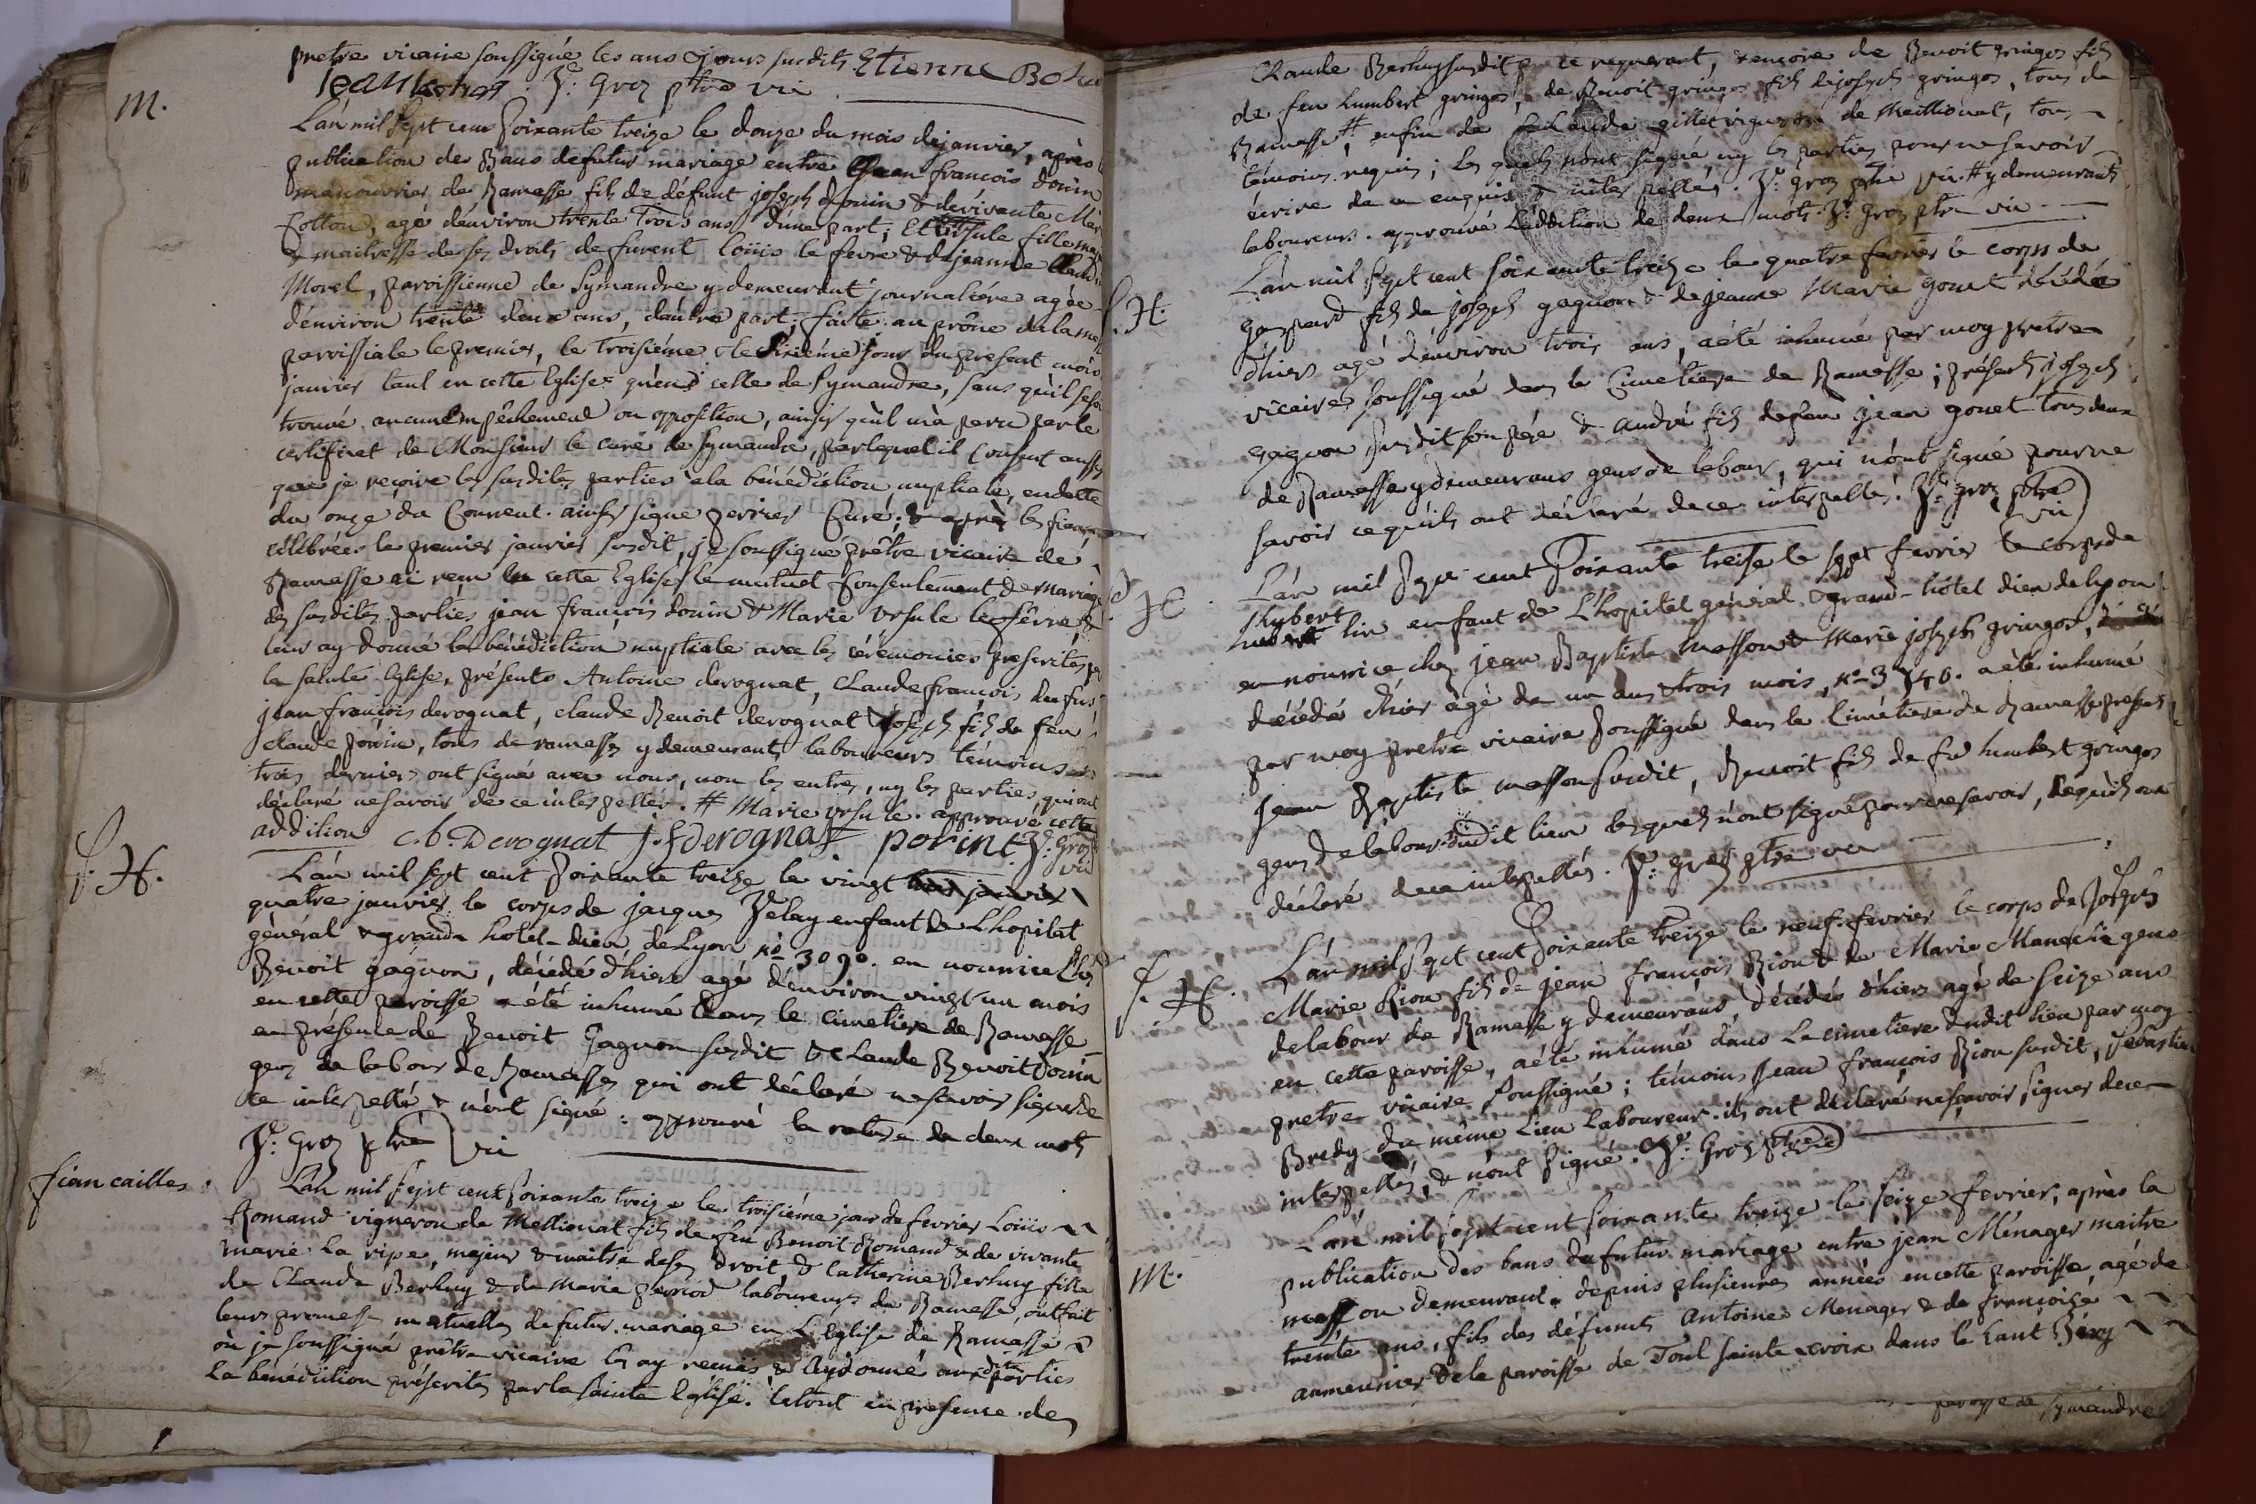 pretre vicaire soussigné les ans & jours susdits Etienne
J: Groz ptre vic
M.
L'an mil sept cent soixante treize le douze du mois de janvier, après
publication des Bans de futur mariage entre jean francois doüin
manouvrier de Ramasse fils de défunt joseph doüin & de vivante
Cotton, agé d'environ trente trois ans d'une part; Et Ursule fille
& maitresse de ses droits de furent loüis le fevre & de jeanne
Morel, paroissienne de Symandre y demeurant journaliére agée
d'environ trente deux ans, d'autre part; faite au prône de la
paroissiale le premier, le troisiéme & le sixiéme jour du present mois
janvier tant en cette Eglise qu'en celle de Symandre, sans qu'il se soit
trouvé aucun empêchement ou opposition, ainsy qu'il m'a paru par le
certificat de Monsieur le curé de Symandre, par lequel il consent aussy
que je reçoive les susdites parties à la bénédiction nuptiale, en datte
du onze du Courent. ainsy signé perrier Curé; & après les
célébrées le premier janvier susdit, je soussigné prêtre vicaire de
Ramasse ai reçu en cette Eglise le mutuel consentement de mariage
des susdites parties jean françois doüin & Marie Ursule le févre &
leur ay donné la bénédiction nuptiale avec les cérémonies prescrites
la sainte Eglise, présents Antoine derognat, Claude françois
jean françois derognat, claude Benoit derognat & joseph fils de feu
claude porin, tous de ramasse y demeurant laboureurs témoins
trois derniers ont signés avec nous, non les autres, ny les parties qui ont
déclaré ne savoir de ce interpellés. # Marie ursule. approuvé cette
addition c. b. Derognat j. f derognat porint J: Groz
vic
S. H.
L'an mil sept cent soixante treize le vingt
quatre janvier le corps de jacques Velay enfant de L'hopital
général & grand hotel-dieu de Lyon N° 3090. en nourrice chez
Benoit gagnon, décédé d'hier agé d'environ vingt un mois
en cette paroisse a été inhumé dans le cimetiere de Ramasse
en présence de Benoit Gagnon susdit & Claude Benoit Doüin
gens de labour de Ramasse qui ont déclaré ne savoir signer de
ce interpellés & n'ont signé: approuvé la rature de deux mots
J: Groz ptre vic
fiancailles.
L'an mil sept cent soixante treize le troisiéme jour de fevrier Loüis
Romand vigneron de Mellionat fils de feu Benoit Romand & de vivante
marie la ripe, majeur & maitre de ses droits & Catherine Berhuy fille
de Claude Berhuy & de Marie perriod laboureurs de Ramasse, ont fait
leurs promesses mutuelles de futur mariage en L'Eglise de Ramasse
où je soussigné prêtre vicaire les ay reçues & ay donné aux dites parties
la bénédiction préscrite par la sainte Eglise. le tout en présence de
Claude Berhuy susdit ce requerant, & encore de Benoit gringoz fils
de feu humbert gringoz, de Benoit gringoz fils de joseph gringoz, tous de
Ramasse #, enfin de Claude gillet vigneron de Meillionat, tous
témoins requis; les quels n'ont signé ny les parties pour ne savoir
écrire de ce enquis & interpellés. J: groz ptre vic. # y demeurants
laboureurs. approuvé l'addition de deux mots. J: groz ptre vic
S. H.
L'an mil sept cent soixante treize le quatre fevrier le corps de
gaspard fils de joseph gagnon & de jeanne Marie gouet décédé
d'hier agé d'environ trois ans, a été inhumé par moy pretre
vicaire soussigné dans le Cimetiere de Ramasse; présents joseph
Gagnon susdit son pére & andré fils de feu jean gouet tous deux
de Ramasse y demeurans gens de labour, qui n'ont signé pour ne
savoir ce qu'ils ont déclaré de ce interpellés. J: groz ptre
vic
L'an mil sept cent soixante treise le sept fevrier le corps de
enfant de L'hopital général & grand-hôtel dieu de lyon
en nourrice chez jean Baptiste Masson & Marie joseph gringoz,
décédé d'hier agé de un an & trois mois, a été inhumé
par moy pretre vicaire soussigné dans le Cimétiere de Ramasse présents
Jean Baptiste masson susdit, Benoit fils de feu humbert gringoz
gens de labour dudit lieu lesquels n'ont signé pour ne savoir, ce qu'ils ont
déclaré de ce interpellés. J: groz ptre vic
S. H.
L'an mil sept cent soixante treize le neuf fevrier le corps de Joseph
Marie Bion fils de jean françois Bion & de Marie gens
de labour de Ramasse y demeurans, décédé d'hier agé de seize ans
en cette paroisse, a été inhumé dans le cimetiere dudit lieu par moy
pretre vicaire soussigné; témoins Jean françois Bion susdit, Sebastien
Bredy du même lieu laboureur. ils ont déclaré ne sçavoir signer de ce
interpellés, & n'ont signé. J: Groz ptre vic
M.
L'an mil sept cent soixante treize le seize fevrier; après la
publication des bans de futur mariage entre jean Ménager maitre
masson demeurant depuis plusieures années en cette paroisse agé de
trente ans, fils des défunts Antoine Menager & de françoise
aumeunier de la paroisse de Toul sainte croix dans le haut Béry
paroisse de Symandre